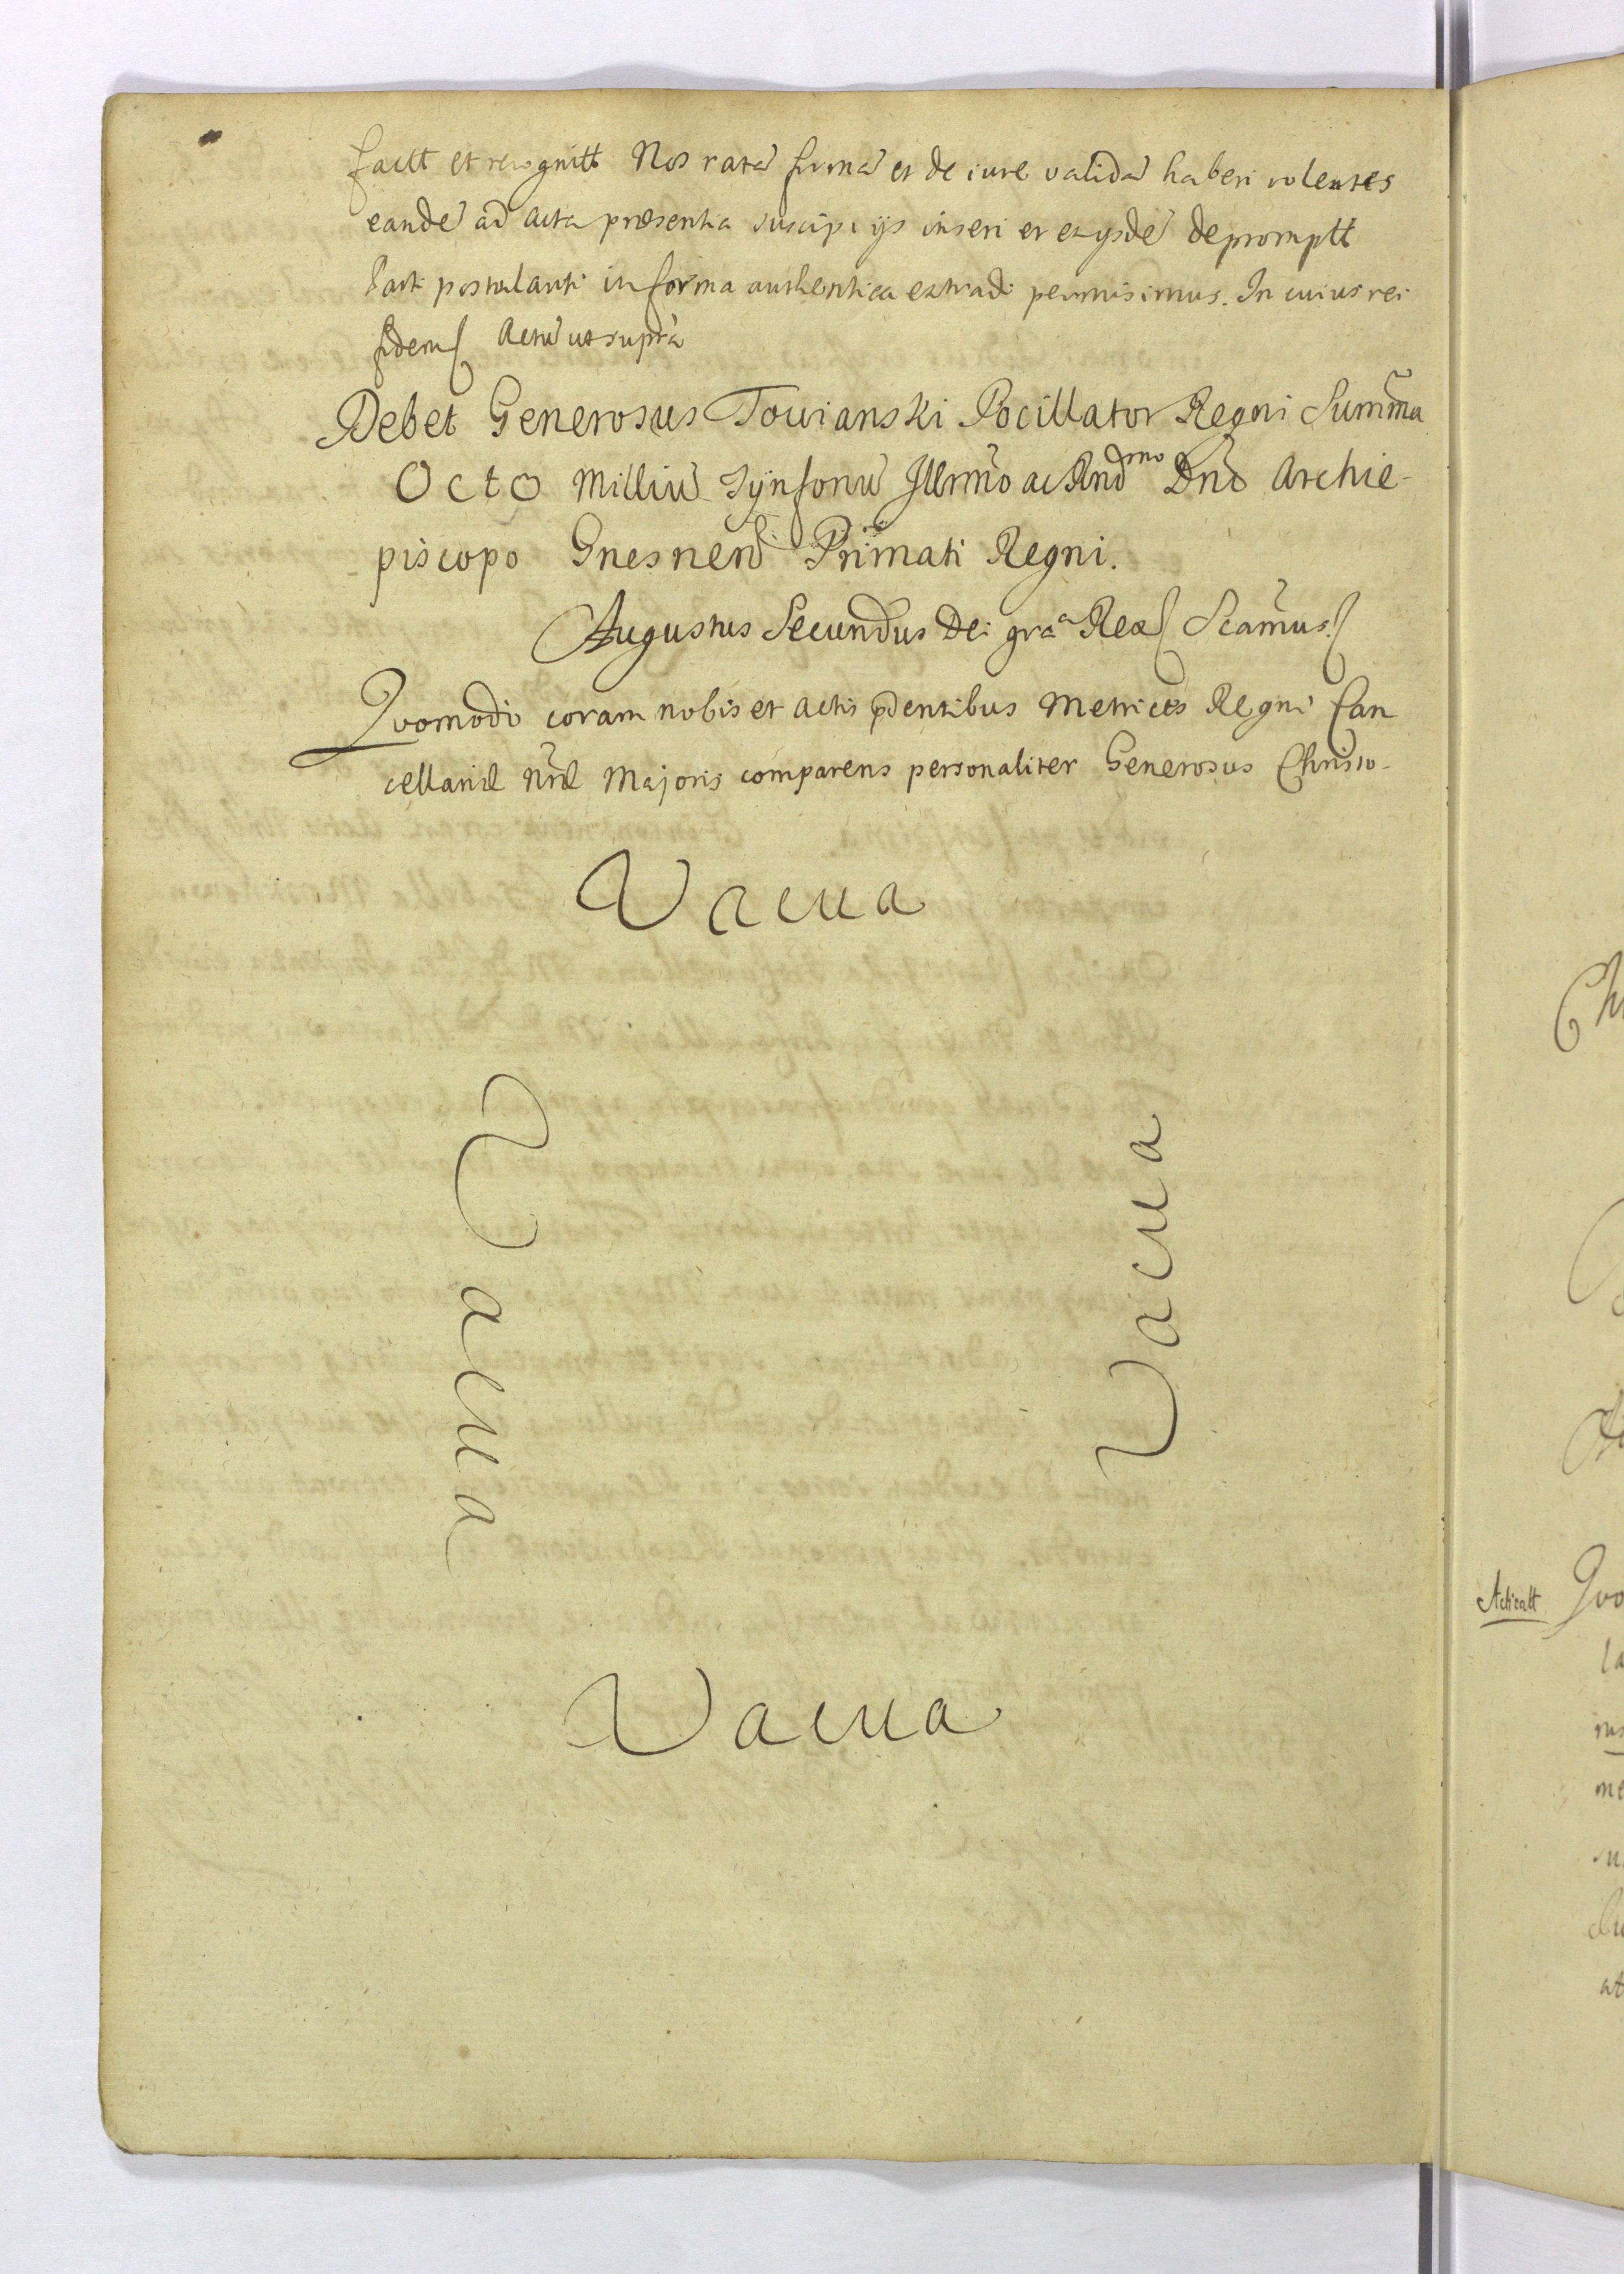 factt et recognitt Nos ratã firmã et de iure validã haberi volentes
eandẽ ad Acta præsentia suscipi ijs inseri et ex ijsdẽ depromptt
Parti postulanti in forma authentica extradi permisimus. In cuius rei
fidem Actũ ut supra
Debet Generosus Towianski Pocillator Regni Summa
Octo Milliũ Tynfonũ Illrmo ac Rndmo Dno Archie-
piscopo Gnesnen Primati Regni.
Augustus Secundus Dei gra Rex Scamus
Quomodo coram nobis et Actis pdentibus Metrices Regni Can
cellariæ Nræ Majoris comparens personaliter Generosus Christo-
Vacua
Vacua
Vacua
Vacua
Acticatt